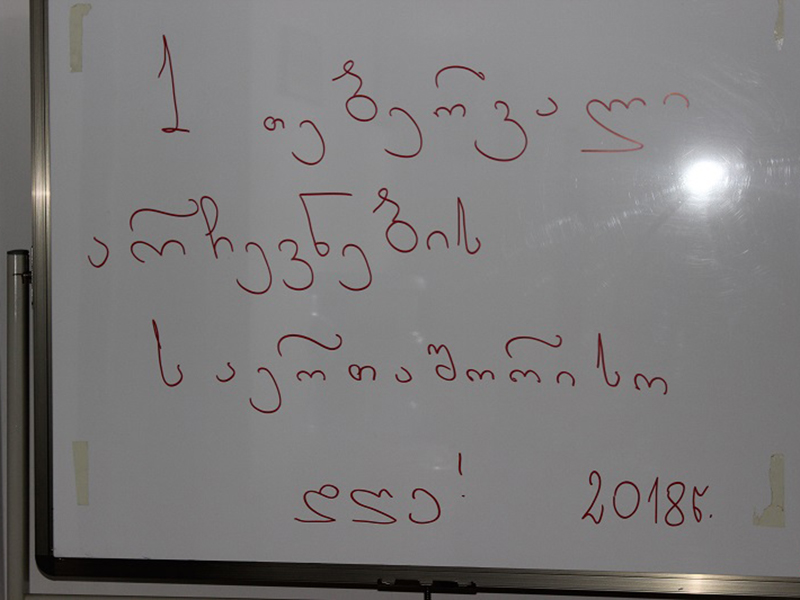 1 თებერვალი
არჩევნების
საერთაშორისო
დღე! 2018წ.